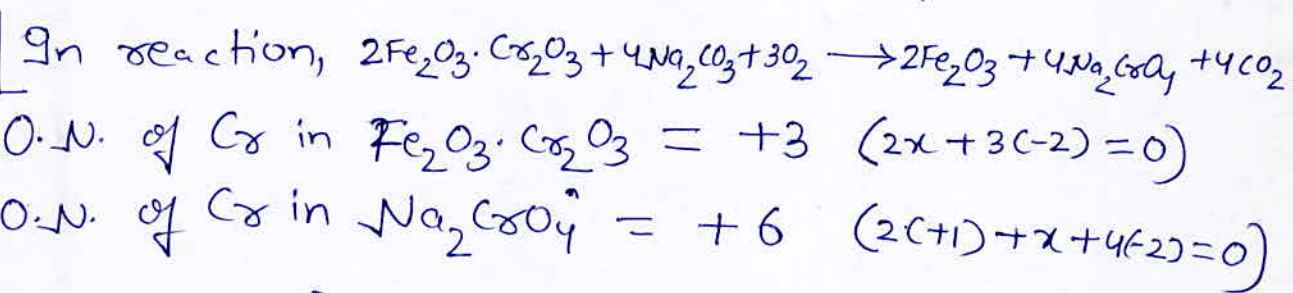 In reaction, 2Fe₂O₃. Cr₂O₃ + 4Na₂CO₃ + 3O₂ ⟶ 2Fe₂O₃ + 4Na₂CrO₄ + 4CO₂
O.N. of Cr in Fe₂O₃. Cr₂O₃ = +3 (2x + 3(-2) = 0)
O.N. of Cr in Na₂CrO₄ = +6 (2(+1) + x + 4(-2) = 0)